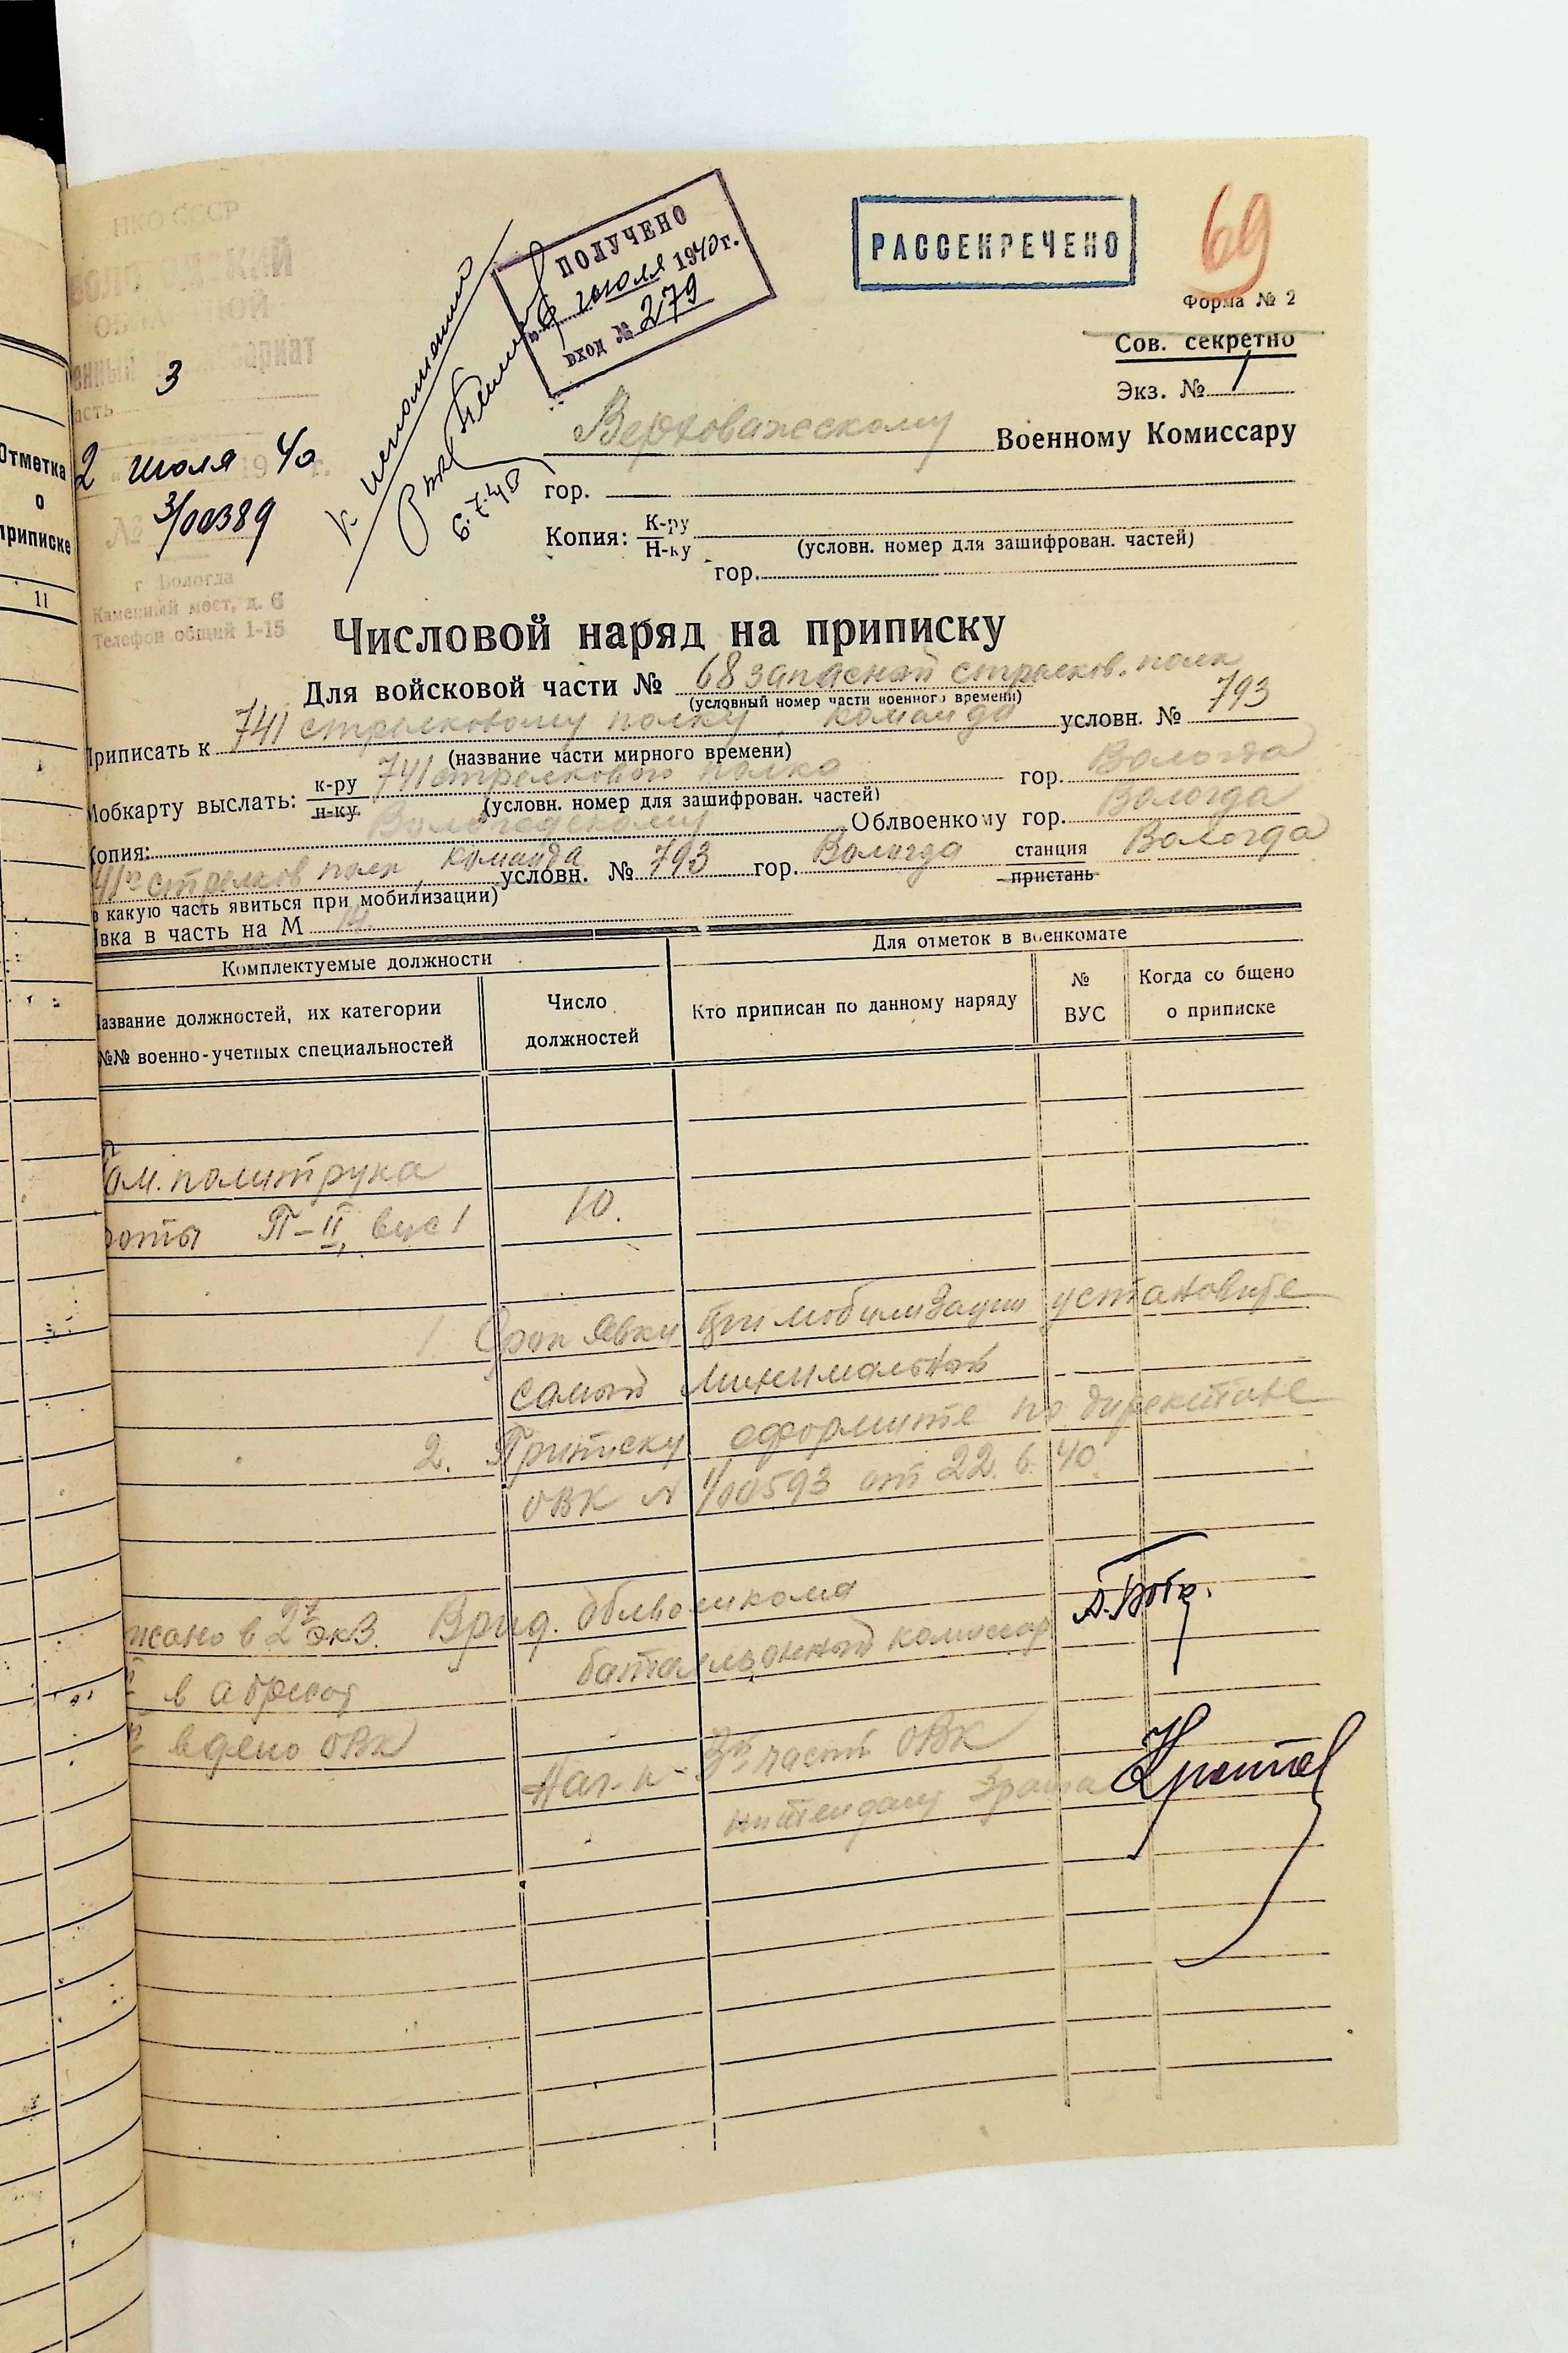 НКО СССР
3
2 июля 40
19 г.
№ 3/00389
г. Вологда
Каменный мост, д. 6
Телефон общий 1-15
К исполнению
6.7.40
ПОЛУЧЕНО
6 июля 1940 г.
вход № 279
РАССЕКРЕЧЕНО
69
Форма № 2
Сов. секретно
Экз. № 1
Верховажскому Военному Комиссару
гор.
Копия: К-ру
Н-ку
(условн. номер для зашифрован. частей)
гор.
Числовой наряд на приписку
Для войсковой части № 68 запасной стрелков. полк
(условный номер части военного времени)
Приписать к 741 стрелковому полку команда условн. № 793
(название части мирного времени)
Мобкарту выслать: к-ру н-ку 741 стрелкового полка гор. Вологда
(условн. номер для зашифрован. частей)
Копия: Вологодскому Облвоенкому гор. Вологда
41й стрелков полк, команда условн. № 793 гор. Вологда станция пристань Вологда
в какую часть явиться при мобилизации)
явка в часть на М 14.
Комплектуемые должности
Для отметок в военкомате
Название должностей, их категории
№№ военно-учетных специальностей
Число
должностей
Кто приписан по данному наряду
№
ВУС
Когда со бщено
о приписке
ом. политрука
роты П-II, вус 1
10.
1 Срок явки при мобилизации установите
самый минимальный
2. Приписку оформите по директиве
ОВК № 1/00593 от 22.6.40
писано в 2х экз.
Врид. Облвоенкома
батальонный комиссар
в адрес
в дело ОВК
Нач-к 3й части ОВК
интендант 3 ранга
Отметка
о
приписке
11